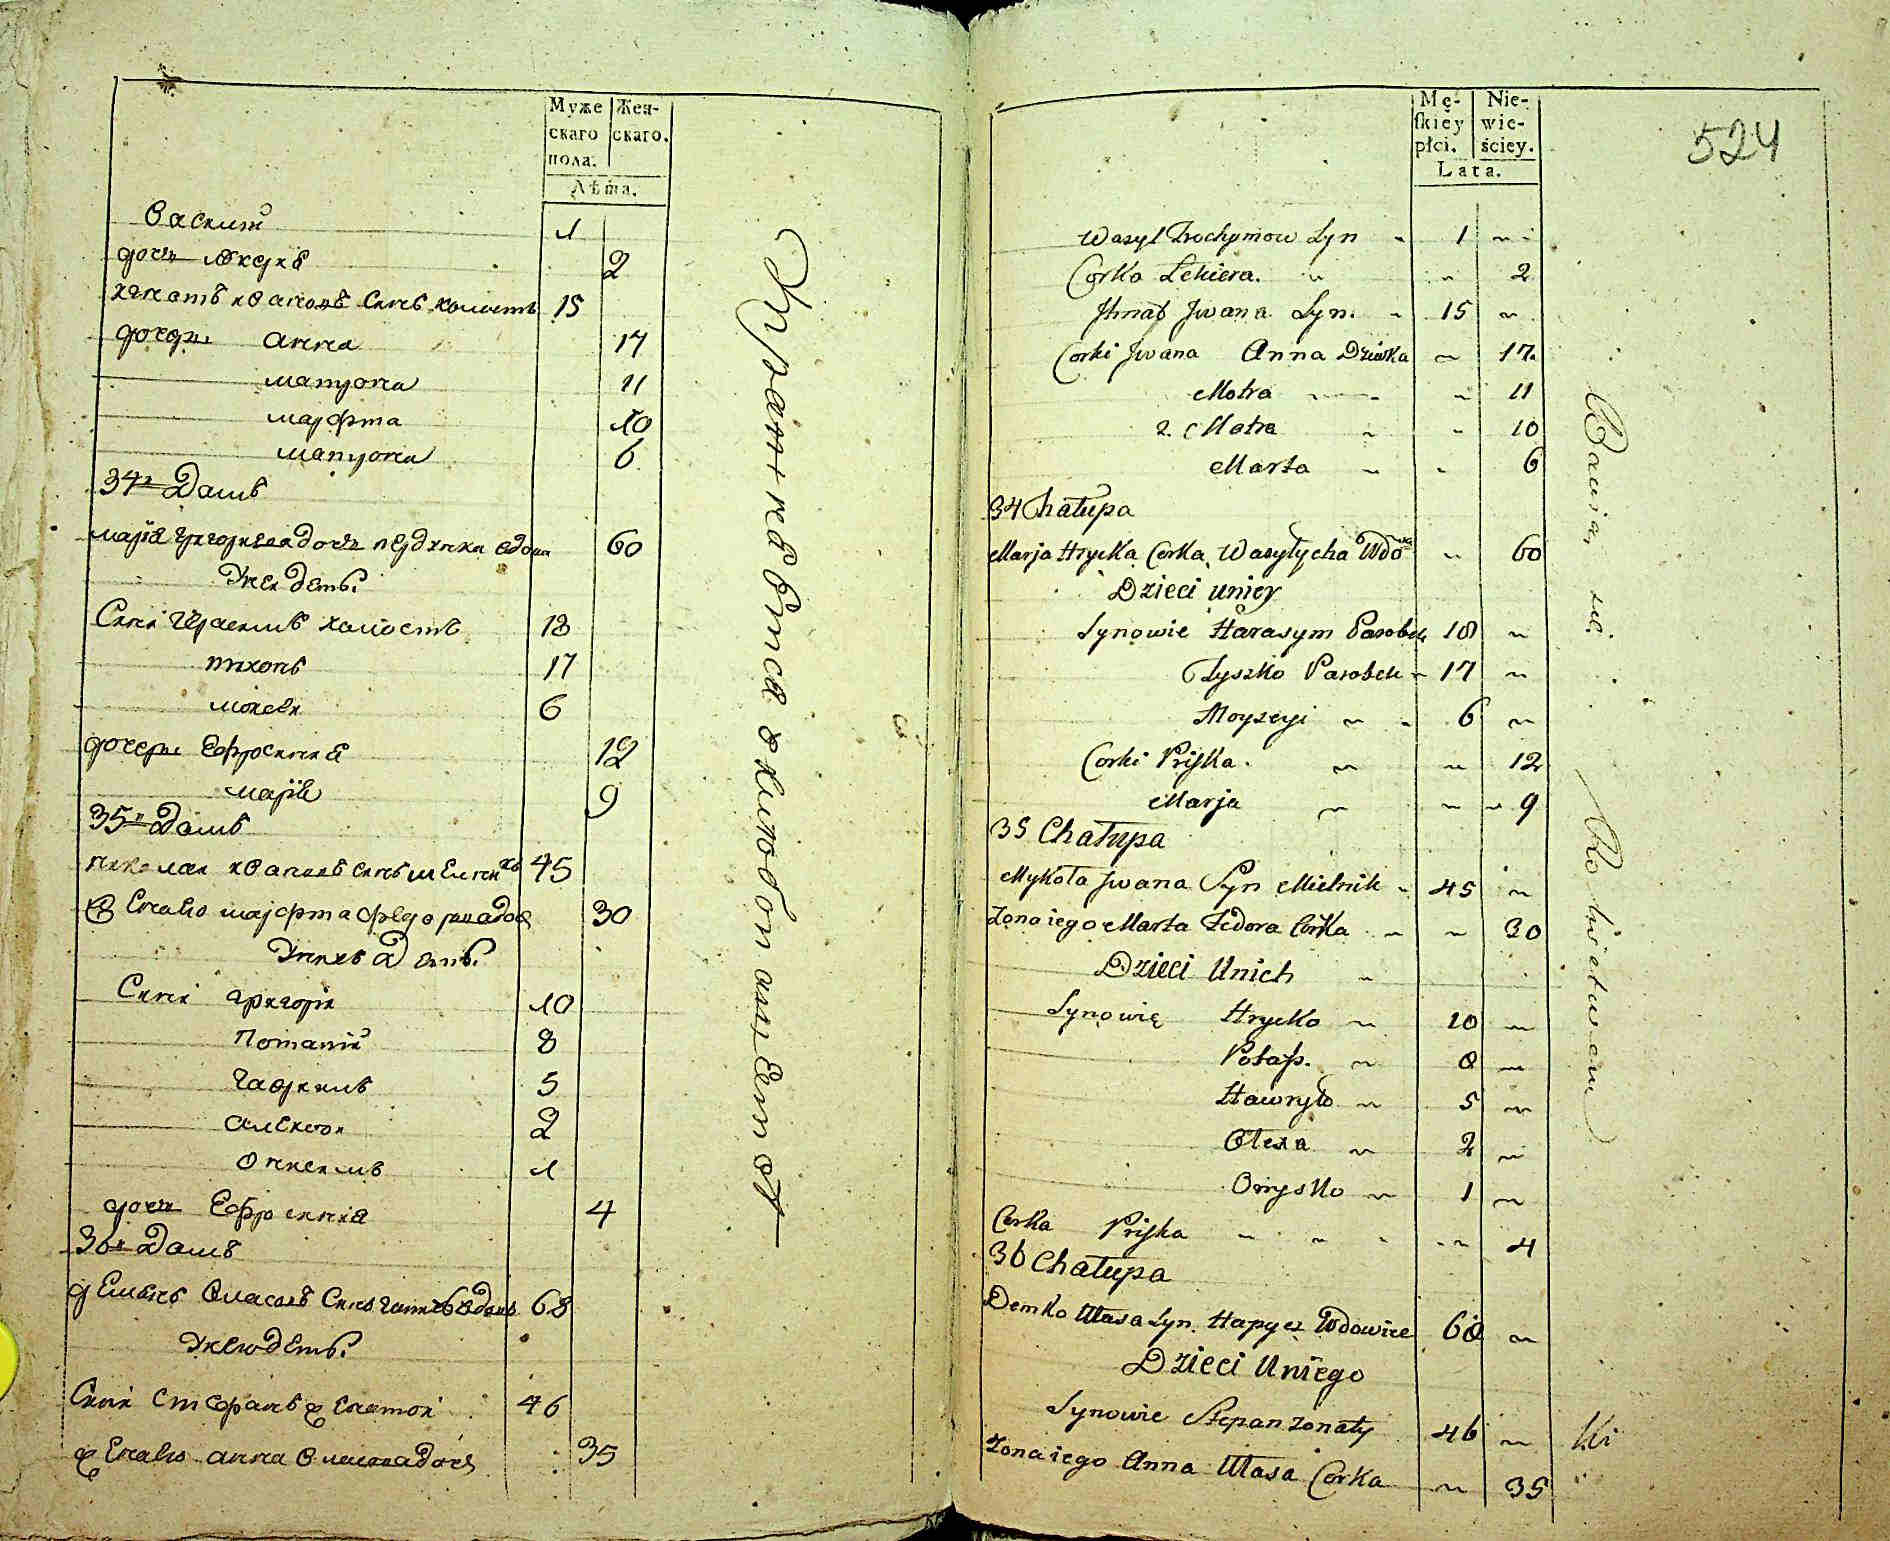 Муже
скаго
пола.
Жен-
скаго.
Лѣта.
Василій 1
дочь 2
15
дочери анна 17
матрона 11
марфта 10
матрона 6
34й Домъ
марія григорьева дочь вдова 60
Унея дети:
Сыни герасимъ холостъ 18
тихонъ 17
моисей 6
дочери Ефросинія 12
марія 9
35й Домъ
николай ивановъ синъ мельникъ 45
Жена ево марфта федорова доч 30
Унихъ дети:
Сыни григорій 10
Потапій 8
гаврилъ 5
алексей 2
онисимъ 1
дочь Ефросинія 4
36й Домъ
демьянъ власовъ Синъ вдовъ 68
Унево дети:
Сыни стефанъ женатой 46
Жена ево анна власова дочь 35
Mę-
skiey
płci.
Nie-
wie-
ściey.
Lata.
524
Wasyl Trochymow Syn 1
Corka 2
Jhnat Jwana Syn. 15
Corki Jwana Anna Dziewka 17
Motra 11
2. Motra 10
Marta 6
34 Chałupa
Marja Hrycka Corka Wasylycha Wdowa 60
Dzieci uniey
Synowie Harasym Parobek 18
Tyszko Parobek 17
Moyseyi 6
Corki Pryska 12
Marja 9
35 Chałupa
Mykoła Jwana Syn Mielnik 45
Zona iego Marta Fedora Corka 30
Dzieci Unich
Synowie Hrycko 10
Potap. 8
Hawryło 5
Olexa 2
Onysko 1
Corka Pryska 4
36 Chałupa
Demko Własa Syn Wdowiec 68
Dzieci Uniego
Synowie Stepan zonaty 46
Zona iego Anna Własa Corka 35